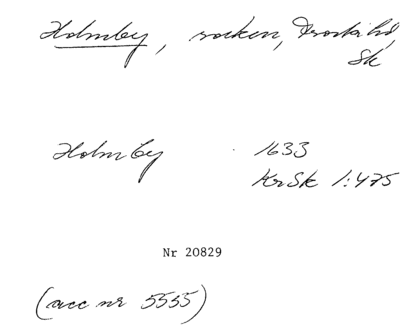 Holmby, socken, Frosta hd,
Sk
Holmby 1633
KrSk 1:475
Nr 20829
(acc nr 5555)